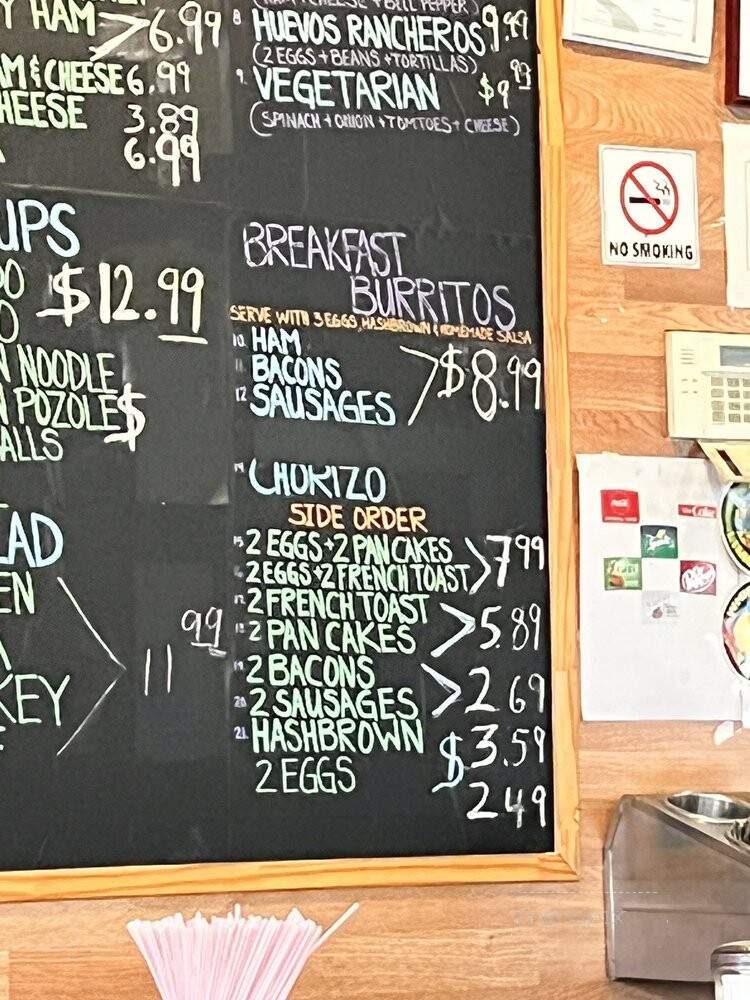 HAM 6.99
& CHEESE 6.99
3.89
6.99
UPS
$12.99
NOODLE
POZOLE $
ALLS
EN
KEY
11 99
(HAM + CHEESE + BELL PEPPER)
8. HUEVOS RANCHEROS 9.99
(2 EGGS + BEANS + TORTILLAS)
9. VEGETARIAN $9
(SPINACH + ONION + TOMTOES + CHEESE)
BREAKFAST
BURRITOS
SERVE WITH 3 EGGS, HASHBROWN & HOMEMADE SALSA
10. HAM
11. BACONS $8.99
12. SAUSAGES
CHORIZO
SIDE ORDER
2 EGGS + 2 PAN CAKES 7.99
2 EGGS + 2 FRENCH TOAST
2 FRENCH TOAST
2 PAN CAKES 5.89
2 BACONS
20. 2 SAUSAGES 2.69
21. HASHBROWN $3.59
2 EGGS 2.49
NO SMOKING